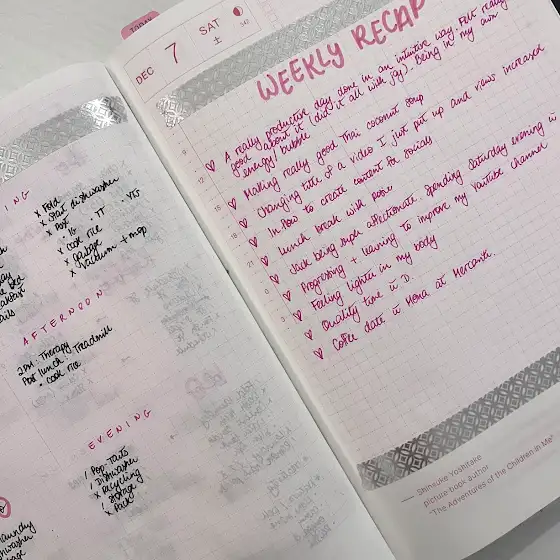 ING
x Fold
x Start dishwasher
x Post
• IG • TT • YTS
• cook rice
x Garbage
x Vacuum + mop
AFTERNOON
2PM: Therapy
Post lunch: Treadmill
• cook rice
EVENING
/ Pop-Tarts
/ Dishwasher
x Recycling
/ Storage
x Pack
laundry
TODAY
DEC 7 SAT
土
342
WEEKLY RECAP
♡ A really productive day, done in an intuitive way. Felt really
good about it (did it all with joy). Being in my own
energy/bubble
♡ Making really good Thai coconut soup
♡ Changing title of a video I just put up and views increased
♡ In flow to create content for socials
♡ Lunch break with
♡ Jack being super affectionate. Spending Saturday evening w
♡ Progressing + learning to improve my YouTube channel
♡ Feeling lighter in my body
♡ Quality time w D.
♡ Coffee date w Mema at Mercante.
— Shinsuke Yoshitake
picture-book author
"The Adventures of the Children in Me"